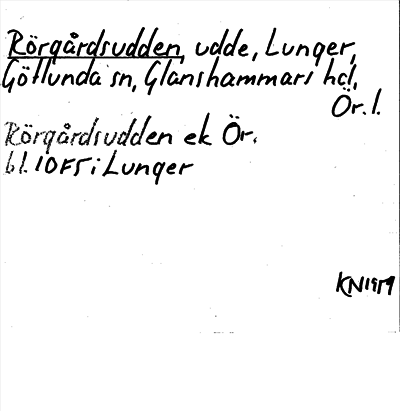 Rörgårdsudden, udde, Lunger,
Götlunda sn, Glanshammars hd,
Ör. l.
Rörgårdsudden ek Ör.
bl. 10F5i Lunger
KN1979